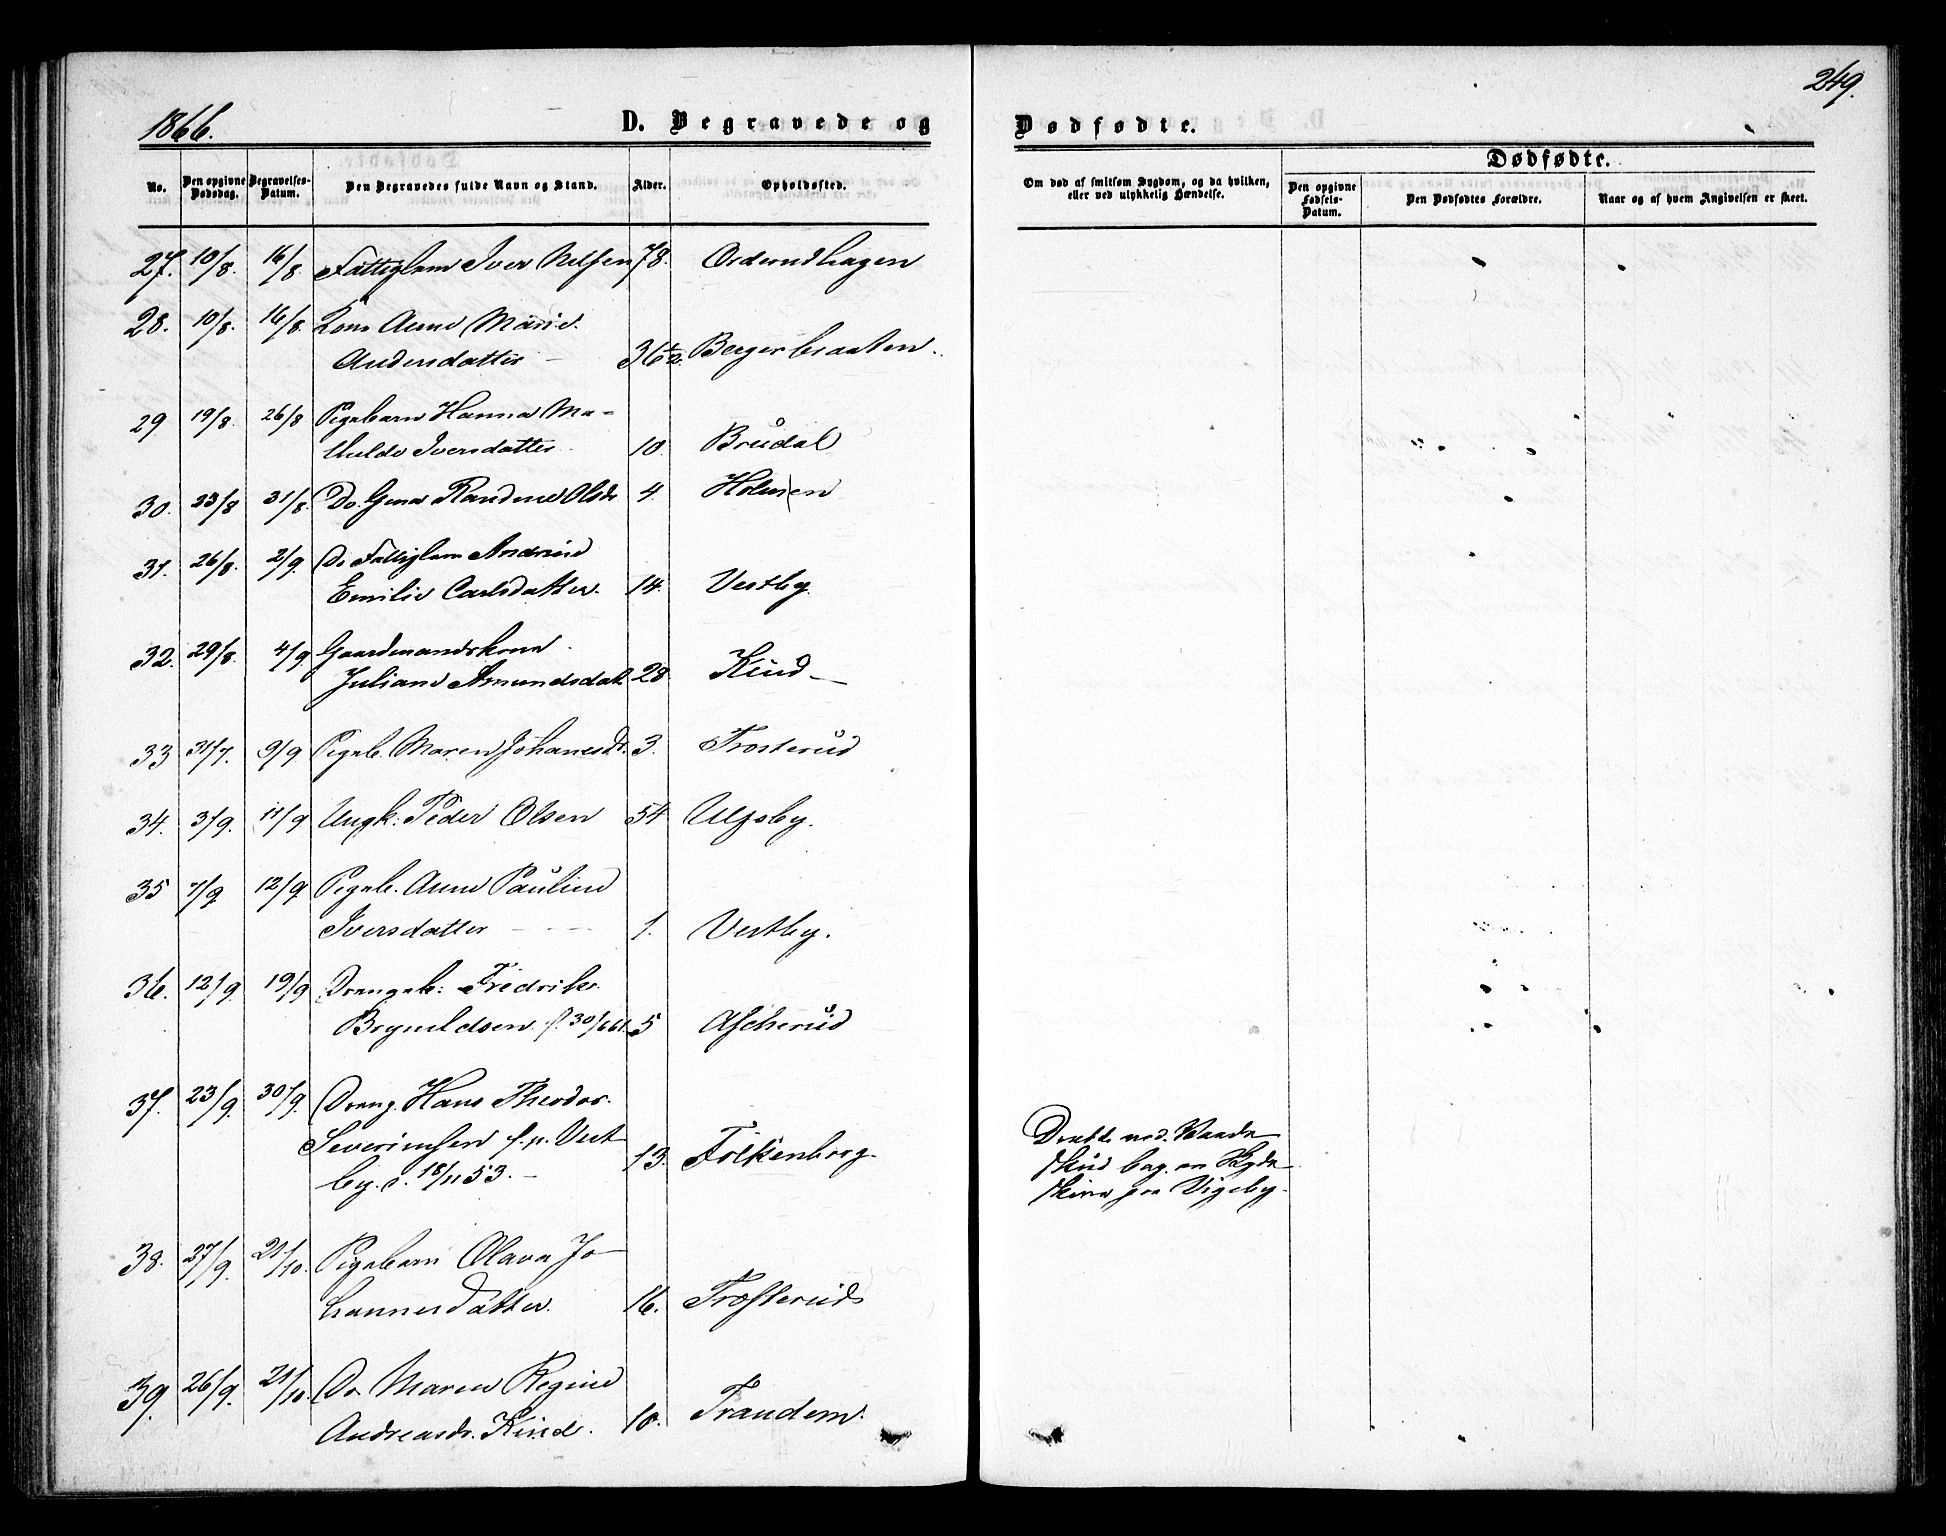 1866.
D. Begravede og
Dødfødte.
249.
No.
Den opgivne Dødsdag.
Begravelses-Datum.
Den Begravedes fulde Navn og Stand.
Alder.
Opholdssted.
Om død af smitsom Sygdom, og da hvilken, eller ved ulykkelig Hændelse.
Dødfødte.
Den opgivne Fødsels-Datum.
Den Dødfødtes Forældre.
Naar og af hvem Angivelsen er skeet.
27. 10/8. 16/8 Fattiglem Iver Nilsen 78. Ordrudhagen
28. 10/8. 16/8. Kone Anne Marie
Andersdatter 36 1/2. Bergerbraaten.
29 19/8. 26/8 Pigebarn Hanna Ma-
thilde Iversdatter 10. Brudal
30. 23/8 31/8. Do. Randine Olsdr 4. Holmen
31. 26/8. 2/9. Do Fattiglem Andrine
Emilie Carlsdatter. 14. Vestby.
32. 29/8. 4/9 Gaardmandskone
Juliane Amundsdat. 28. Kind
33 31/7. 9/9 Pigeb. Maren Johanesdr. 3. Trosterud
34. 3/9. 11/9 Ungk. Peder Olsen 54 Ulfsby.
35 7/9 12/9 Pigeb. Anne Pauline
Iversdatter 1. Vestby.
36. 12/9. 19/9 Drengeb: Fredrik
Brynildsen f. 30/6 61. 5 Ascherud
37. 23/9. 30/9. Dreng. Hans Theodor
Severinsen f. p. Vest
by d. 18/11 53. 13. Folkenborg
Dræbt ved Vaade
skud bag en Skyde
skive paa Vigsby.
38. 27/9. 21/10. Pigebarn Olava Jo-
hannesdatter. 16. Trosterud
39. 26/9. 21/10. Do Maren Regine
Andreasdr. Kind. 10. Trandem.